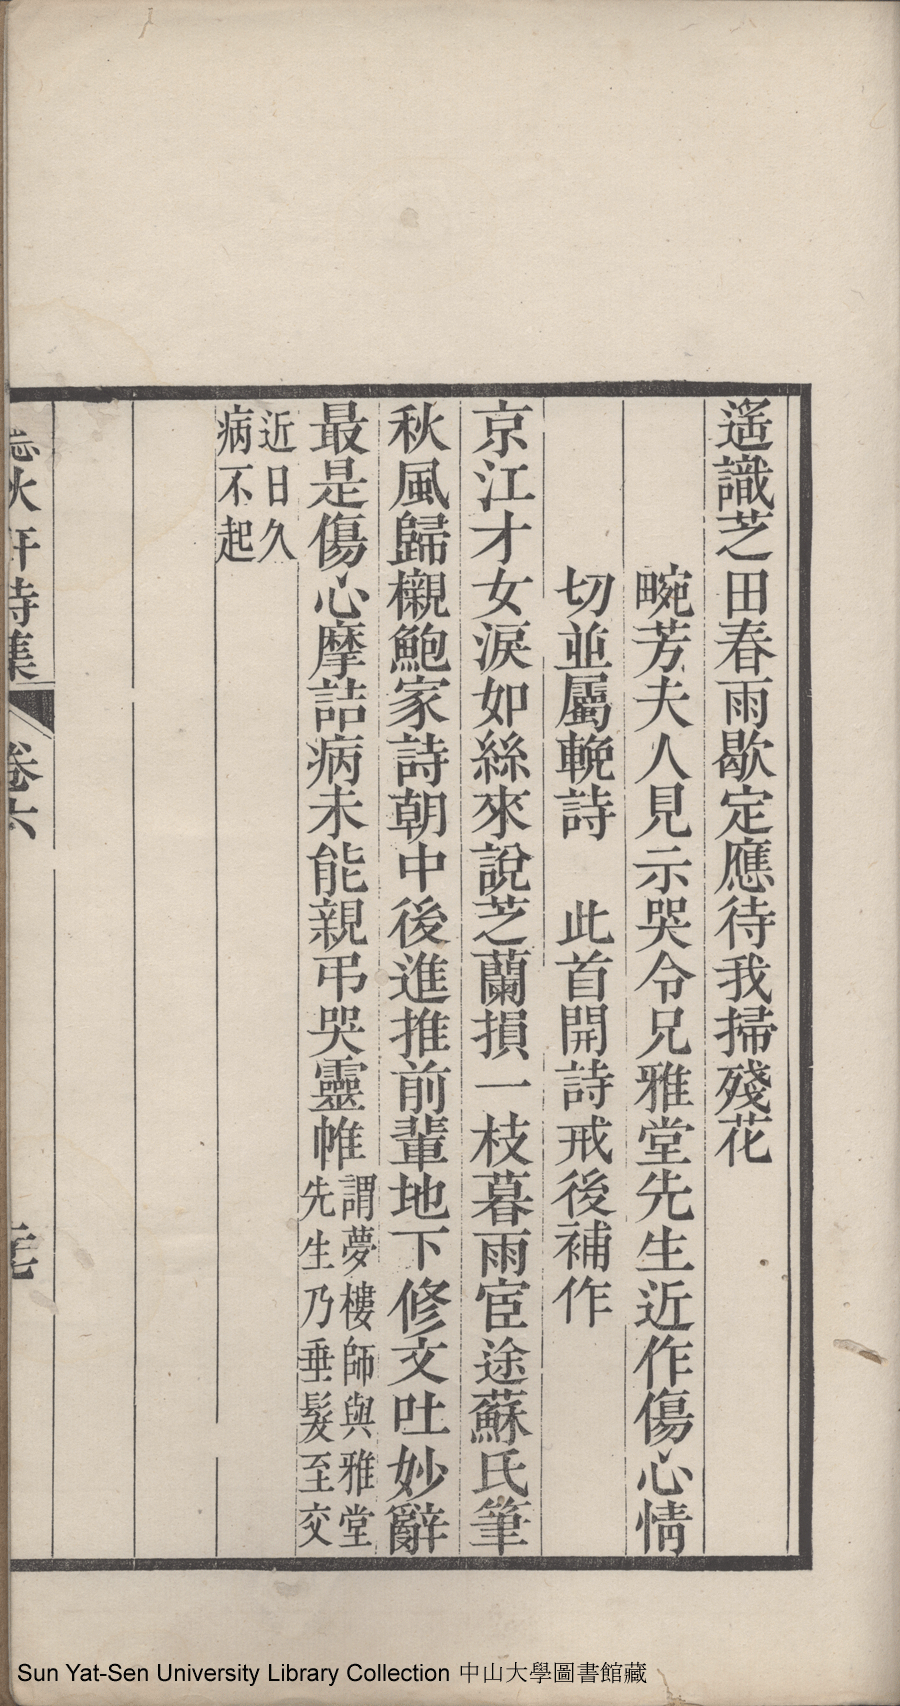 遙識芝田春雨歇定應待我掃殘花
畹芳夫人見示哭令兄雅堂先生近作傷心情
切並屬輓詩　此首開詩戒後補作
京江才女淚如絲來說芝蘭損一枝暮雨宦途蘇氏筆
秋風歸櫬鮑家詩朝中後進推前輩地下修文吐妙辭
最是傷心摩詰病未能親弔哭靈帷謂夢樓師與雅堂
先生乃垂髮至交
近日久
病不起
秋軒詩集
卷六
Sun Yat-Sen University Library Collection 中山大學圖書館藏